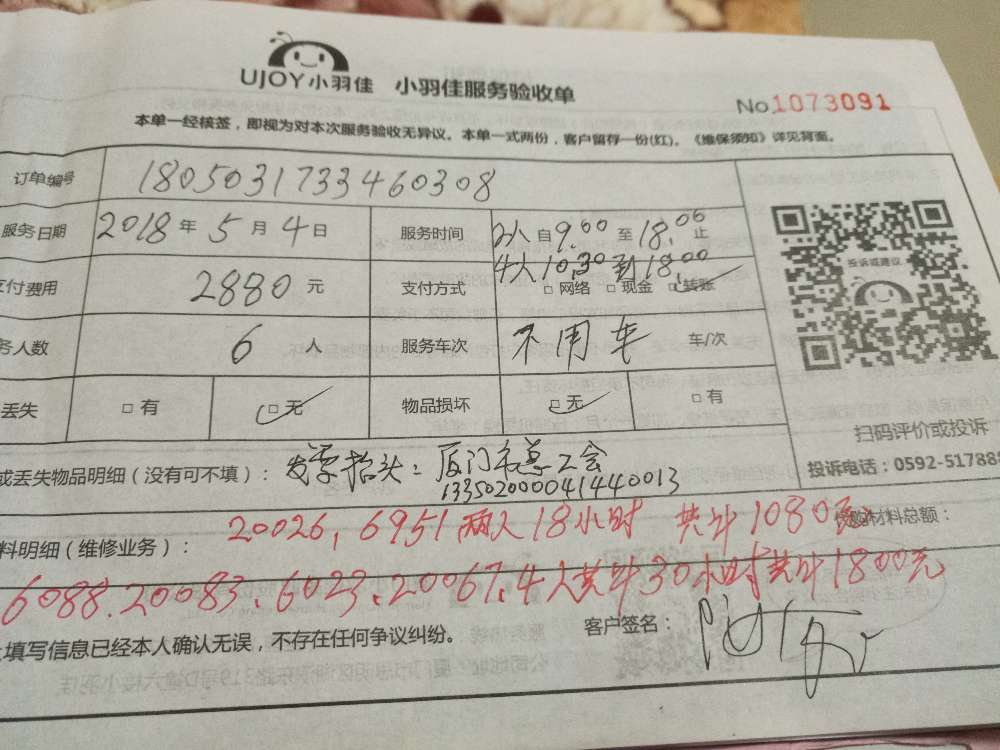 UJOY小羽佳 小羽佳服务验收单
No 1073091
本单一经核签，即视为对本次服务验收无异议。本单一式两份，客户留存一份(红)。《维保须知》详见背面。
订单编号 1805031733460308
服务日期 2018年5月4日 服务时间 2人自9.00至18.00止
4人10.30到18.00
支付费用 2880元 支付方式 □网络 □现金 □转账
务人数 6人 服务车次 不用车 车/次
丢失 □有 □无 物品损坏 □无 □有
投诉或建议
扫码评价或投诉
投诉电话：0592-517888
或丢失物品明细（没有可不填）：发票抬头：厦门市总工会
133502000041440013
料明细（维修业务）：20026, 6951两人18小时 共计1080元 材料总额：
6088.20083.6023.20067.4人共计30小时共计1800元
填写信息已经本人确认无误，不存在任何争议纠纷。 客户签名：